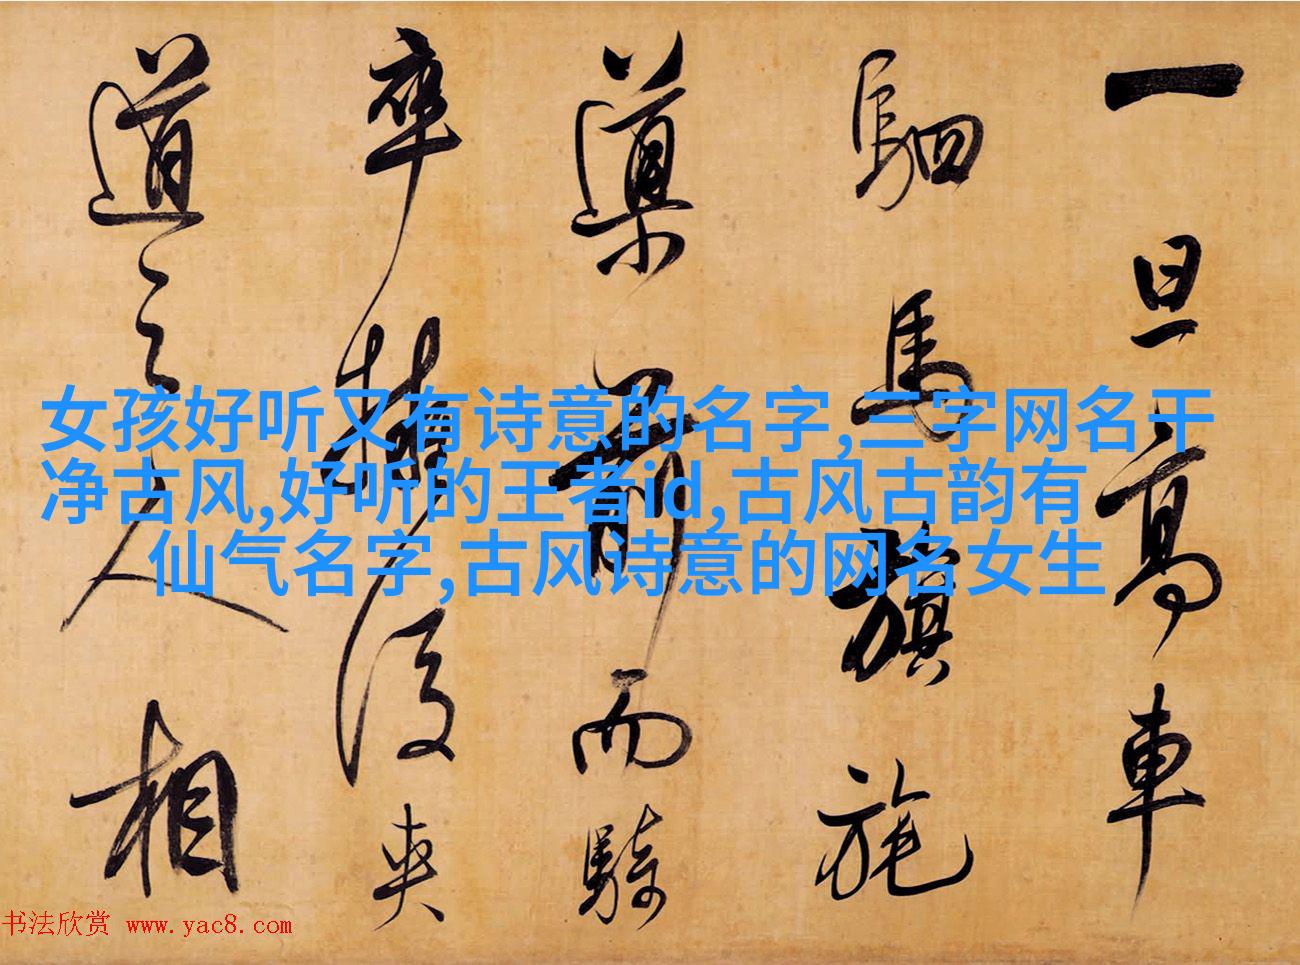 一旦高車
駟馬旗旄
導前而騎
卒擁後夾
道之人相
女孩好听又有诗意的名字,二字网名干
净古风,好听的王者id,古风古韵有
仙气名字,古风诗意的网名女生
书法欣赏 www.yac8.com